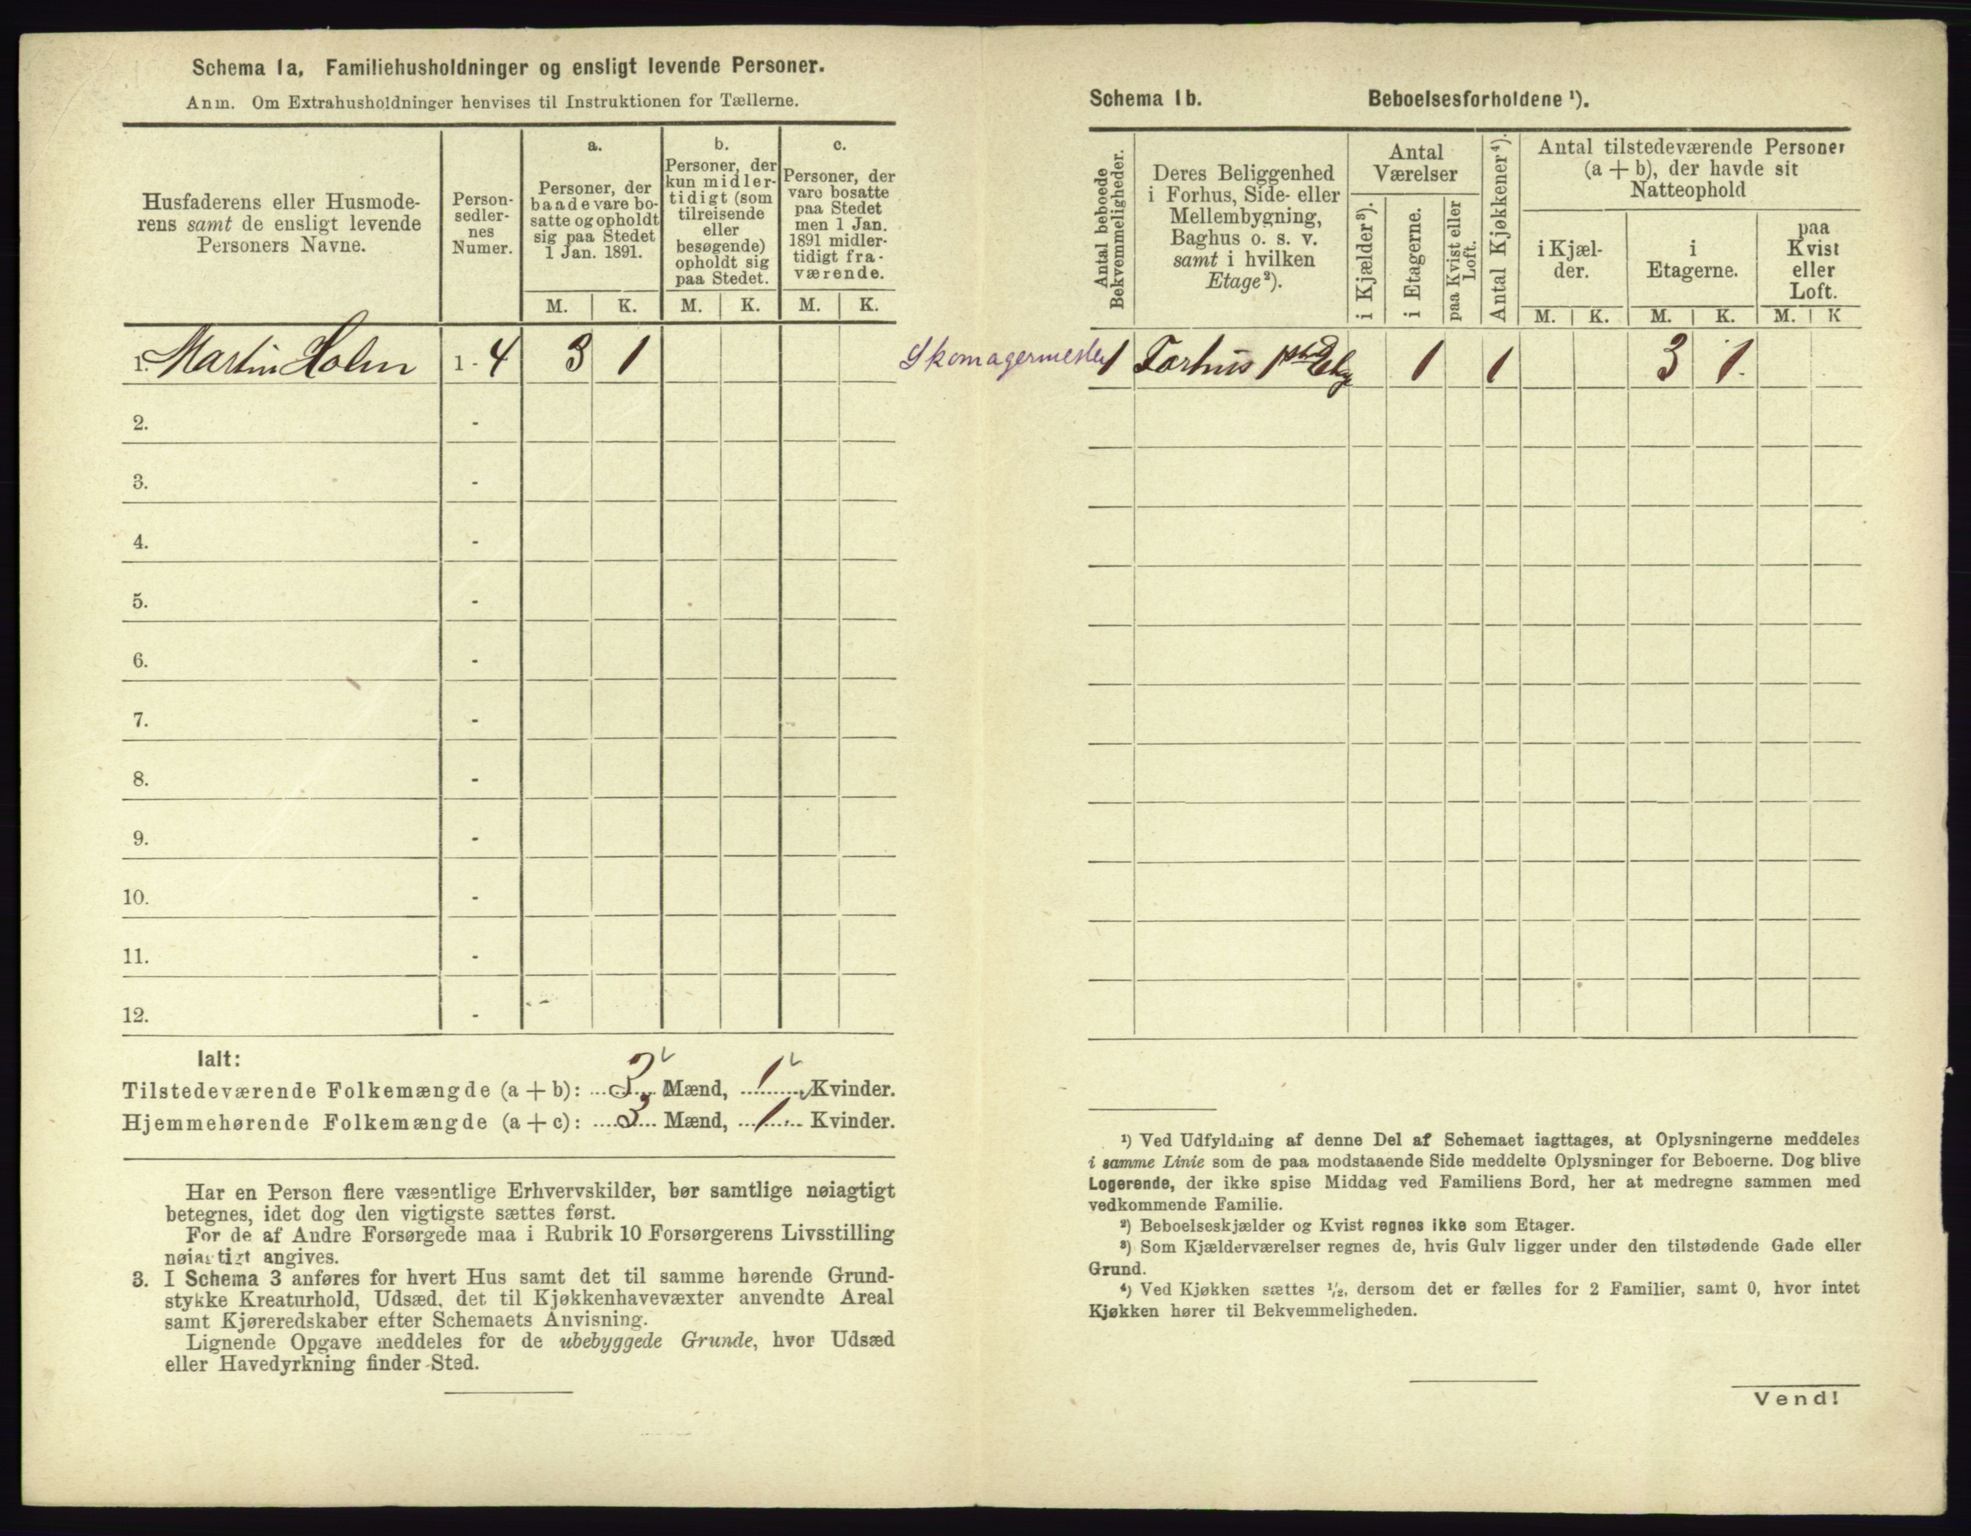 Schema 1a. Familiehusholdninger og ensligt levende Personer.
Anm. Om Extrahusholdninger henvises til Instruktionen for Tællerne.
Husfaderens eller Husmode-
rens samt de ensligt levende
Personers Navne.
Person-
sedler-
nes
Numer.
a.
Personer, der
baade vare bo-
satte og opholdt
sig paa Stedet
1 Jan. 1891.
b.
Personer, der
kun midler-
tidigt (som
tilreisende
eller
besøgende)
opholdt sig
paa Stedet.
c.
Personer, der
vare bosatte
paa Stedet
men 1 Jan.
1891 midler-
tidigt fra-
værende.
M. K. M. K. M. K.
1. Martin Holm 1 - 4 3 1
2. -
3. -
4. -
5. -
6. -
7. -
8. -
9. -
10. -
11. -
12. -
Ialt:
Tilstedeværende Folkemængde (a + b): 3 Mænd, 1 Kvinder.
Hjemmehørende Folkemængde (a + c): 3 Mænd, 1 Kvinder.
Har en Person flere væsentlige Erhvervskilder, bør samtlige nøiagtigt
betegnes, idet dog den vigtigste sættes først.
For de af Andre Forsørgede maa i Rubrik 10 Forsørgerens Livsstilling
nøiagtigt angives.
3. I Schema 3 anføres for hvert Hus samt det til samme hørende Grund-
stykke Kreaturhold, Udsæd, det til Kjøkkenhavevæxter anvendte Areal
samt Kjøreredskaber efter Schemaets Anvisning.
Lignende Opgave meddeles for de ubebyggede Grunde, hvor Udsæd
eller Havedyrkning finder Sted.
Schema 1b. Beboelsesforholdene ¹).
Antal beboede
Bekvemmeligheder.
Deres Beliggenhed
i Forhus, Side- eller
Mellembygning,
Baghus o. s. v.
samt i hvilken
Etage²).
Antal
Værelser
i Kjælder³).
i Etagerne.
paa Kvist eller
Loft.
Antal Kjøkkener⁴).
Antal tilstedeværende Personer
(a + b), der havde sit
Natteophold
i Kjæl-
der.
i
Etagerne.
paa
Kvist
eller
Loft.
M. K. M. K. M. K
Skomagermester 1 Forhus 1 1 1 3 1
¹) Ved Udfyldning af denne Del af Schemaet iagttages, at Oplysningerne meddeles
i samme Linie som de paa modstaaende Side meddelte Oplysninger for Beboerne. Dog blive
Logerende, der ikke spise Middag ved Familiens Bord, her at medregne sammen med
vedkommende Familie.
²) Beboelseskjælder og Kvist regnes ikke som Etager.
³) Som Kjælderværelser regnes de, hvis Gulv ligger under den tilstødende Gade eller
Grund.
⁴) Ved Kjøkken sættes ½, dersom det er fælles for 2 Familier, samt 0, hvor intet
Kjøkken hører til Bekvemmeligheden.
Vend!